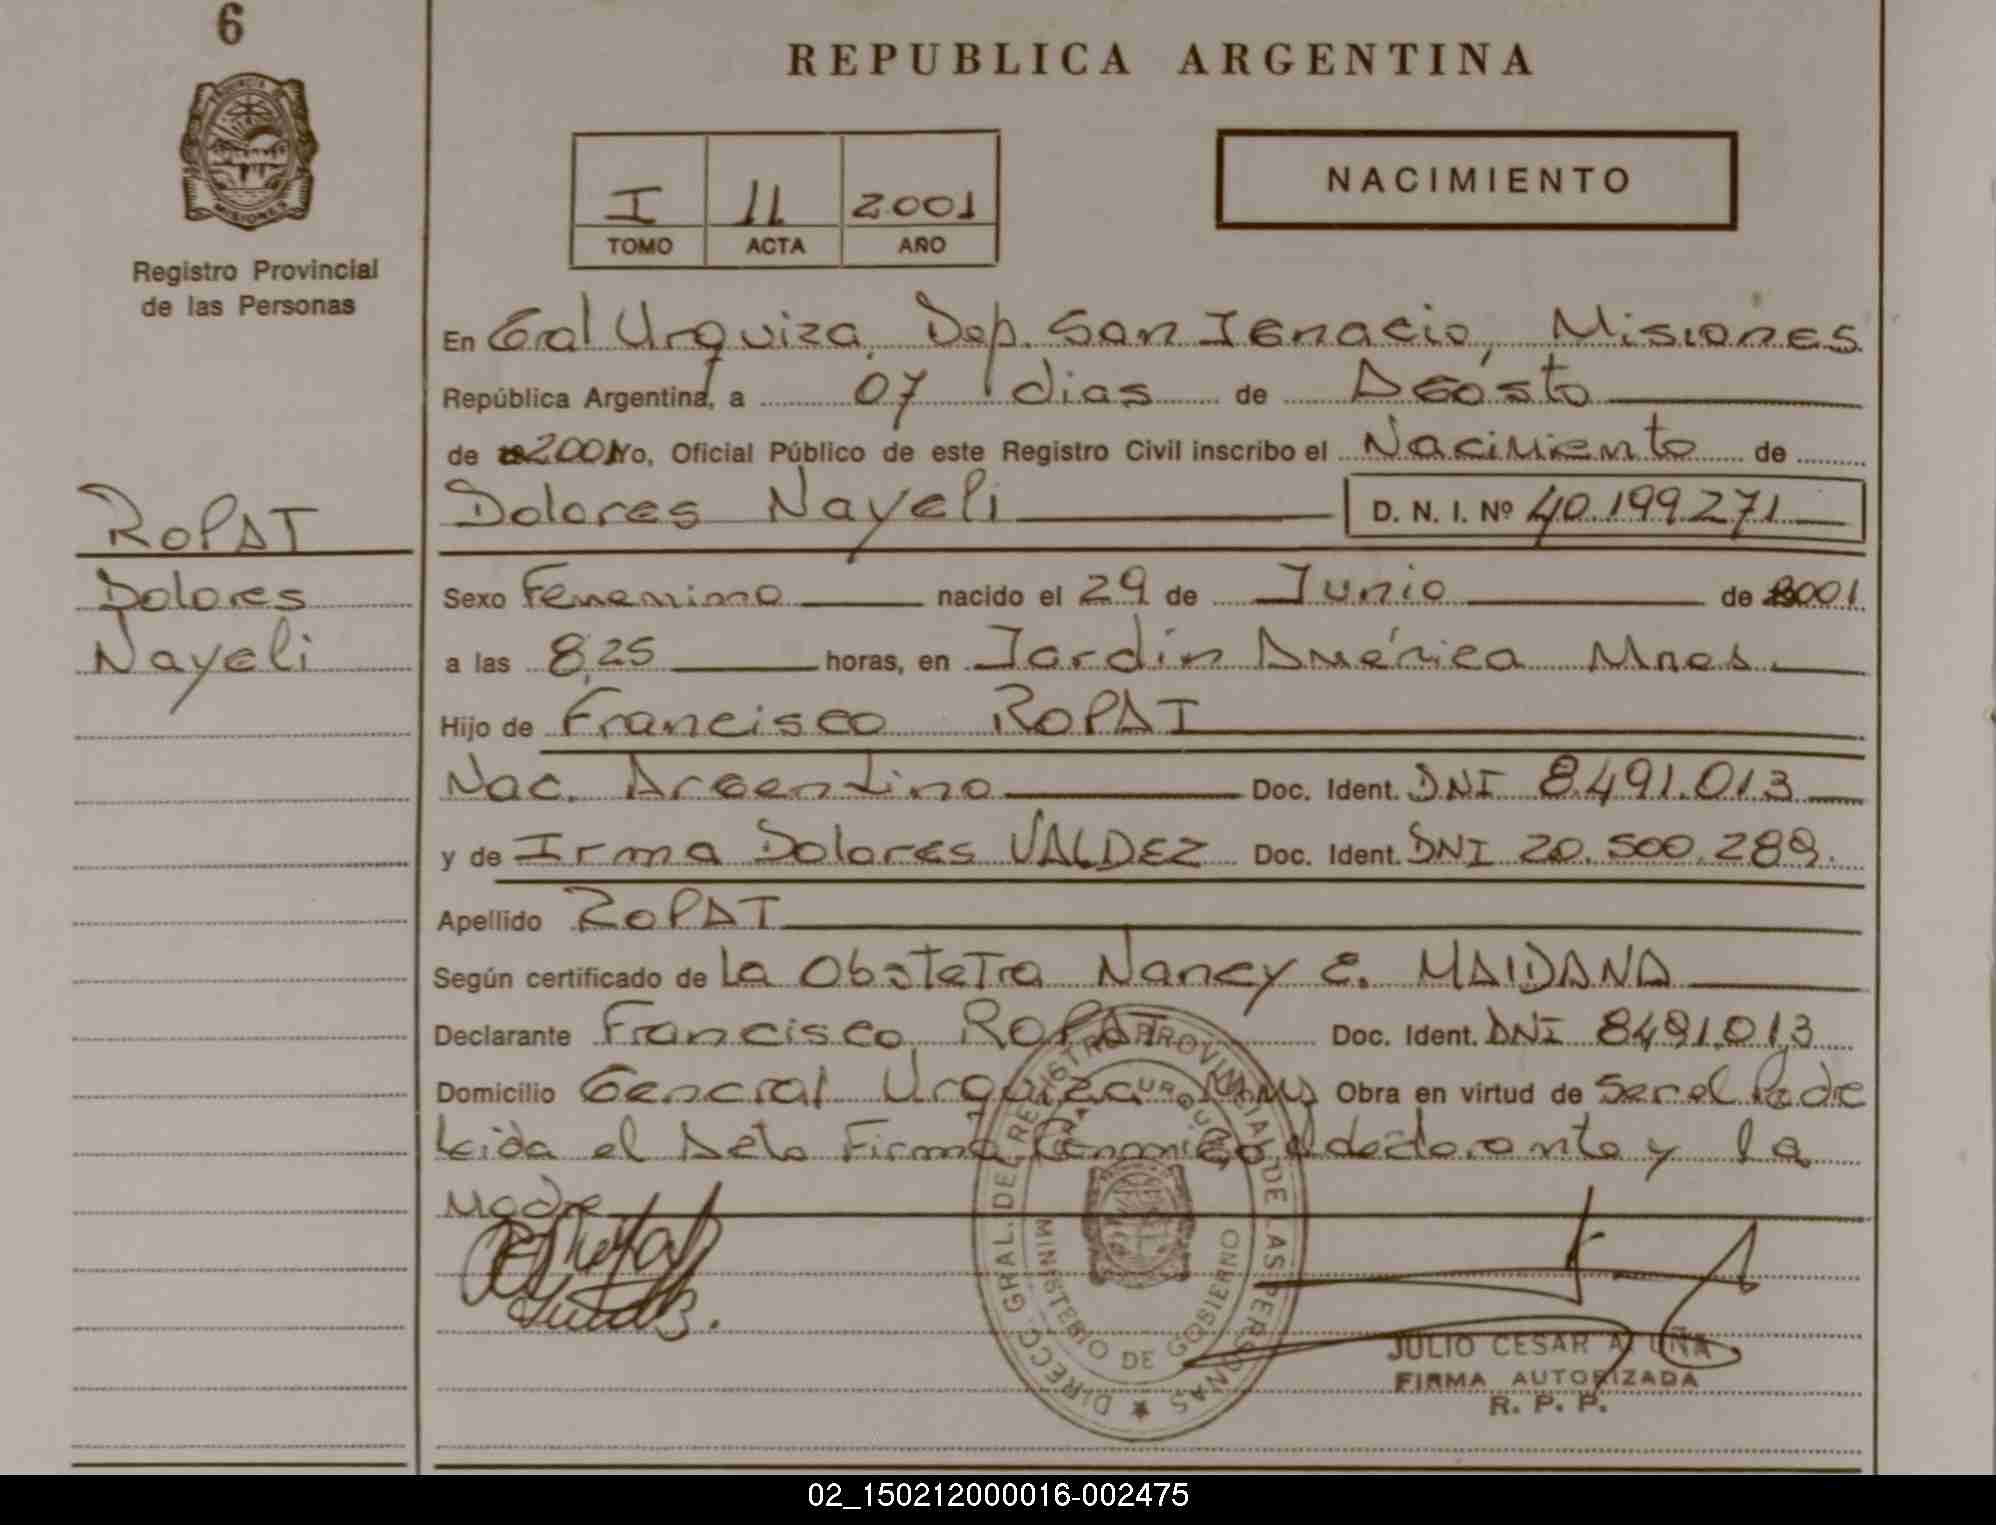 6
PROVINCIA DE
MISIONES
Registro Provincial
de las Personas
ROPAT
Dolores
Nayeli
REPUBLICA ARGENTINA
I 11 2001
TOMO ACTA AÑO
NACIMIENTO
En Gral Urquiza, Dep. San Ignacio, Misiones
República Argentina, a 07 dias de Agosto
de 2001 Yo, Oficial Público de este Registro Civil inscribo el Nacimiento de
Dolores Nayeli D. N. I. Nº 40.199.271
Sexo Femenino nacido el 29 de Junio de 2001
a las 8,25 horas, en Jardin América Mnes.
Hijo de Francisco ROPAT
Nac. Argentino Doc. Ident. DNI 8.491.013
y de Irma Dolores VALDEZ Doc. Ident. DNI 20.500.289.
Apellido ROPAT
Según certificado de La Obstetra Nancy E. MAIDANA
Declarante Francisco ROPAT Doc. Ident. DNI 8491.013
Domicilio General Urquiza Mnes Obra en virtud de ser el Padre
Leida el Acta Firma Conmigo el declarante y la
Madre
DIRECC. GRAL. DEL REGISTRO PROVINCIAL DE LAS PERSONAS
MINISTERIO DE GOBIERNO
JULIO CESAR
FIRMA AUTORIZADA
R. P. P.
02_150212000016-002475